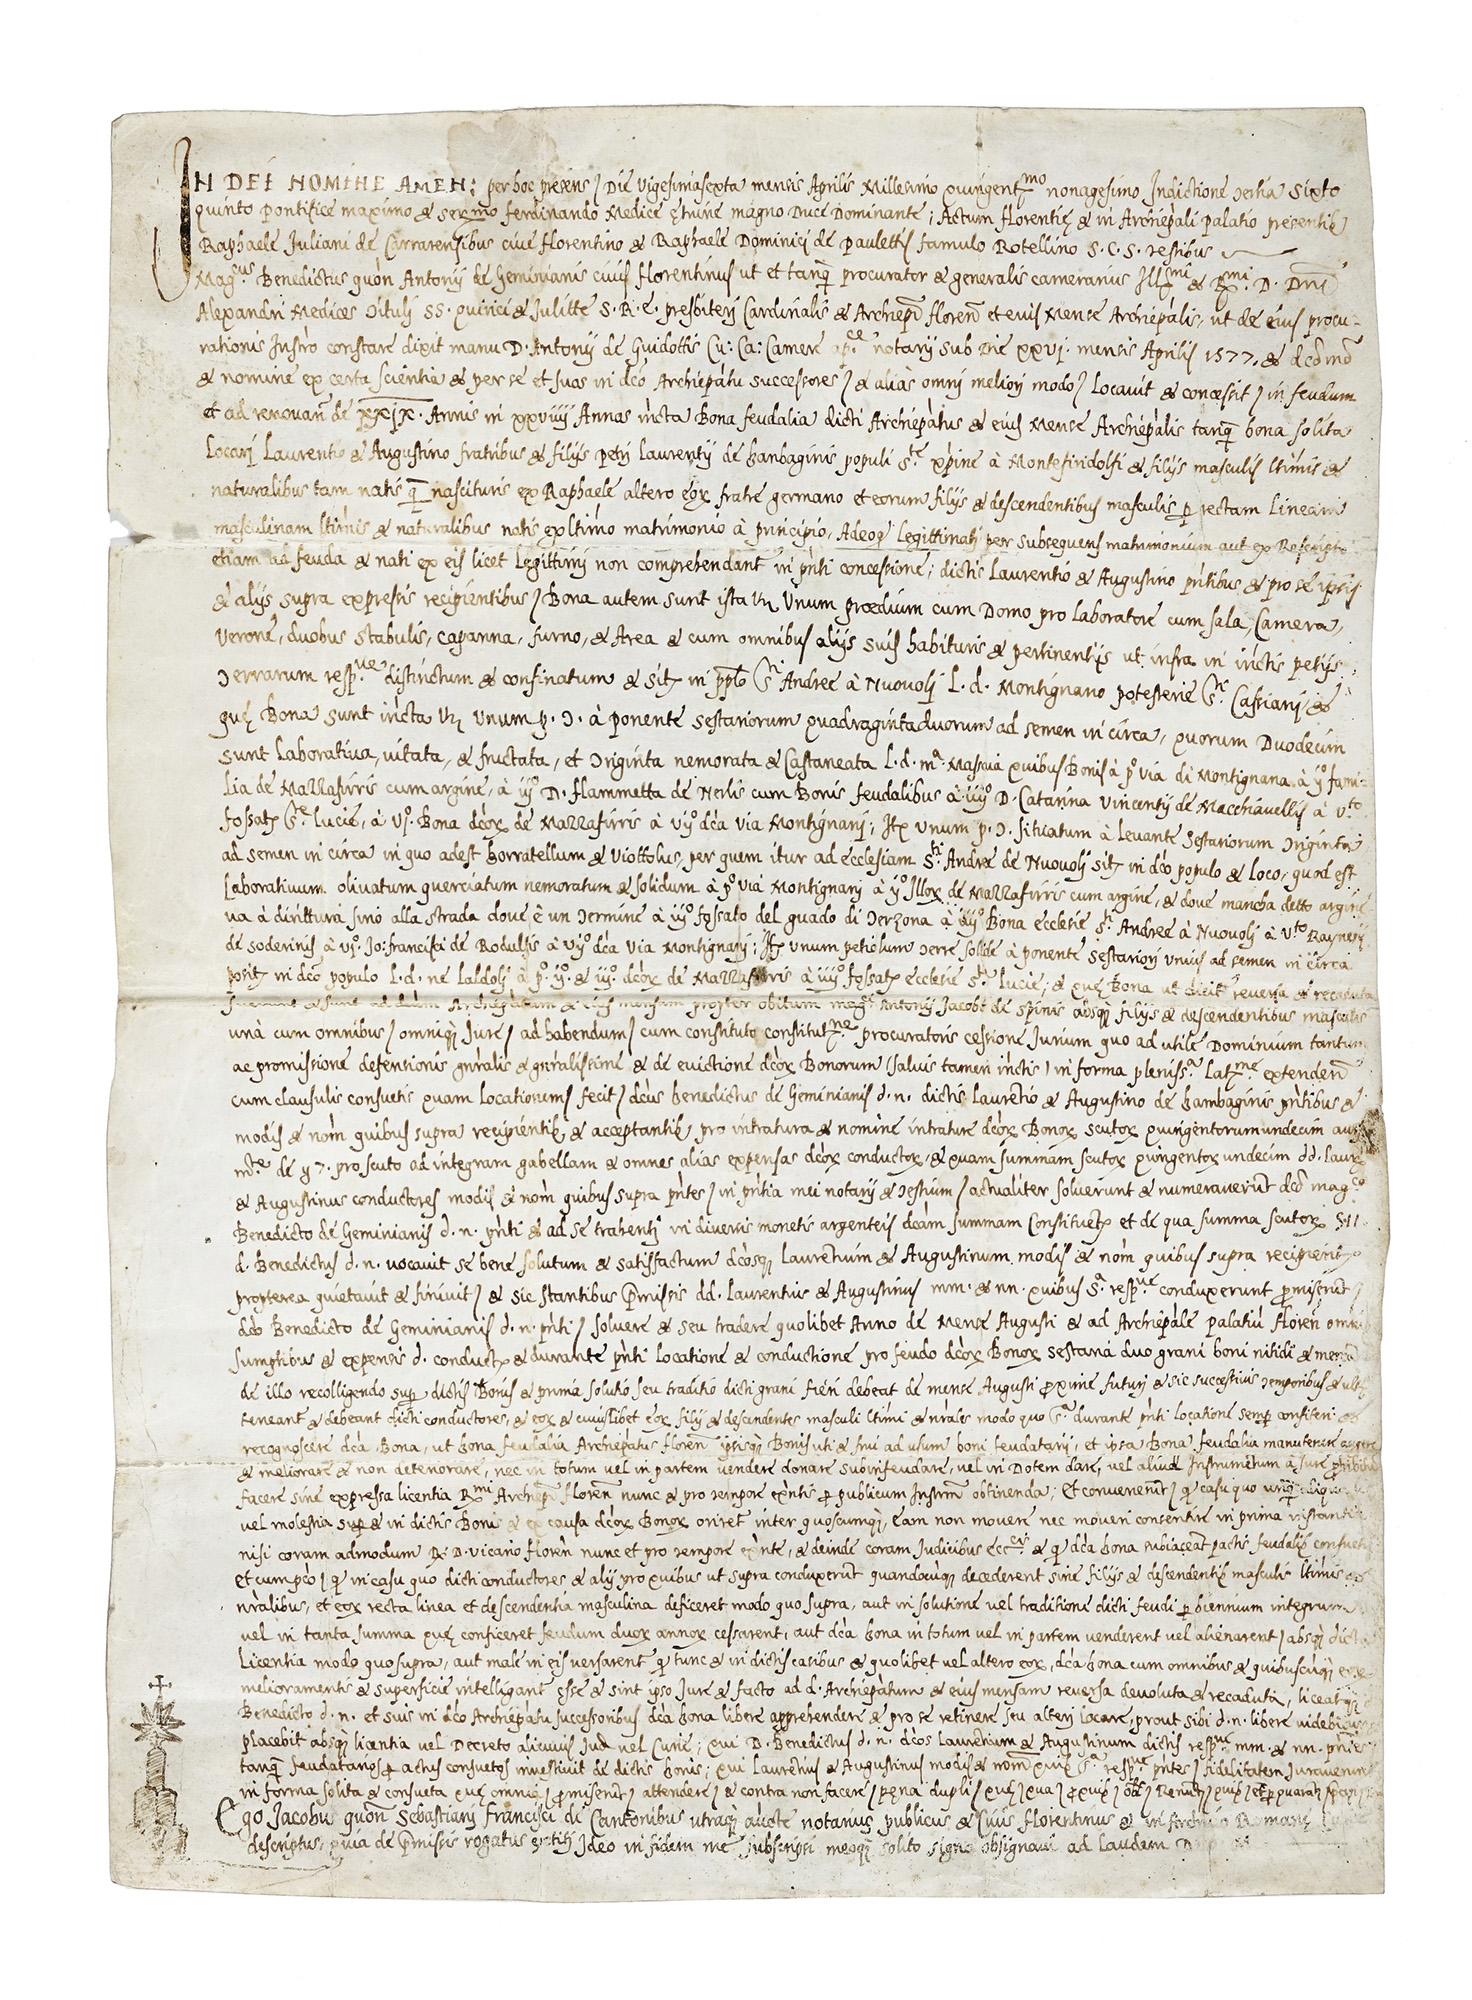 IN DEI NOMINE AMEN: per hoc presens / Die Vigesimasexta mensis Aprilis Millesimo quingent.mo nonagesimo Indictione tertia Sixto
quinto pontifice maximo & ser.mo ferdinando Medice magno Duce Dominante; Actum florentię & in Archiepali palatio
Raphaele Juliani de Carrarensibus cive florentino & Raphaele Dominici de paulettis famulo Rotellino S.C.S. testibus
Mag.cus Benedictus quon Antonij de Geminianis civis florentinus ut et tanq procurator & generalis camerarius Ill.mi & R.mi D. Dni
Alexandri Medices tituli SS. quirici & Julitte S.R.E. presbiteri Cardinalis & Archiepi floren et eius Mense Archiepalis, ut de eius procu-
rationis Instro constare dixit manu D. Antonij de Guidottis Cu: Ca: Camere ap.ce notarij sub Die XXVJ. mensis Aprilis 1577, &
& nomine ex certa scientia & per se et suos in dco Archiepatu successores / & alias omni meliori modo / Locavit & concessit / in feudum
et ad renovan de XXJX. Annis in XXVIIII Annos incta Bona feudalia dicti Archiepatus & eius Mense Archiepalis tanq bona solita
Locari Laurentio & Augustino fratribus & filijs petri Laurentij de bambaginis populi S.te xpine à Montefiridolfi & filijs masculis ltimis &
naturalibus tam natis q nascituris ex Raphaele altero eor fratre germano et eorum filijs & descendentibus masculis p rectam Lineam
masculinam ltimis & naturalibus natis ex ltimo matrimonio à principio, Adeoq Legittimati per subsequens matrimonium aut ex Rescripto
etiam ad feuda & nati ex eis licet Legittimi non comprehendant in pnti concessione; dictis Laurentio & Augustino pntibus & pro se ipsis
& alijs supra expressis recipientibus / Bona autem sunt ista Vz Unum prœdium cum Domo pro laboratore cum sala, Camera,
Verone, duobus stabulis, capanna, furno, & Area & cum omnibus alijs suis habituris & pertinentijs ut infra in inctis petijs
Terrarum resp.ve distinctum & confinatum & sit in pplo S.ti Andree à Nuovoli L.d. Montignano potesterie S.ti Cassiani, &
quę Bona sunt incta Vz Unum p. T. à ponente sestariorum quadragintaduorum ad semen in circa, quorum Duodecim
sunt laborativa, vitata, & fructata, et Triginta nemorata & Castaneata L.d. quibus Bonis à p.o via di Montignana à ij.o fami-
lia de Mazzafirris cum argine, à iij.o D. flammetta de Nerlis cum Bonis feudalibus à iiij.o D. Catarina Vincentij de Macchiavellis à V.to
fossat S.te lucie, à Vj.o Bona dcor de Mazzafirris à Vij.o dca via Montignani; It Unum p. T. situatum à Levante sestariorum Triginta
ad semen in circa in quo adest borratellum & Viottolus, per quem itur ad ecclesiam S.ti Andree de Nuovoli sit in dco populo & Loco, quod est
Laborativum olivatum querciatum nemoratum & solidum à p.o via Montignani à ij.o Illor de Mazzafirris cum argine, & dove mancha detto argine
va à dirittura sino alla strada dove è un Termine à iij.o fossato del guado di Terzona à iiij.o Bona Ecclesie S.ti Andree à Nuovoli à V.to Raynerij
de soderinis à Vj.o Jo: francisci de Rodulfis à Vij.o dca via Montignani; It Unum petiolum terre solide à ponente sestariorj unius ad semen in circa
posit in dco populo L.d. ne laldoli à p.o ij.o & iij.o dcor de Mazzafirris à iiij.o fossat ecclesie S.te Lucie; & quę Bona ut dicit reversa & recaduta
fuerunt & sunt ad dictum Archiepatum & eius mensam propter obitum mag.ci Antonij Jacobi de spinis absq filijs & descendentibus masculis
unà cum omnibus / omniq Jure / ad habendum / cum constituto constitut.ne procuratoris cessione Jurium quo ad utile Dominium tantum
ac promissione defensionis gnralis & gnralissime & de evictione dcor Bonorum (salvis tamen inctis) in forma pleniss.a Lat.me extenden
cum clausulis consuetis quam Locationem / fecit / dcus benedictus de Geminianis d.n. dictis Laurentio & Augustino de bambaginis pntibus &
modis & nom quibus supra recipientib & acceptantib pro intratura & nomine intrature dcor Bonor scutor quingentorumundecim
de ₤ 7. pro scuto ad integram gabellam & omnes alias expensas dcor conductor, & quam summam scutor quingentor undecim dd.
& Augustinus conductores modis & nom quibus supra pntes / in pntia mei notarij & Testium / actualiter solverunt & numeraverunt dco mag.co
Benedicto de Geminianis d.n. pnti & ad se trahenti in diversis monetis argenteis dcam summam Constituet et de qua summa scutor 511
d. Benedictus d.n. vocavit se bene solutum & satisfactum dcosq Laurentium & Augustinum modis & nom quibus supra
propterea quietavit & finivit / & sic stantibus pmissis dd. Laurentius & Augustinus mm. & nn. quibus S.a resp.ve conduxerunt promiserunt /
dco Benedicto de Geminianis d.n. pnti / solvere & seu tradere quolibet Anno de Mense Augusti & ad Archiepale palatiu floren
sumptibus & expensis d. conduct & durante pnti locatione & conductione pro feudo dcor Bonor sestaria duo grani boni nitidi &
de illo recolligendo sup dictis Bonis & prima solutio seu traditio dicti grani fieri debeat de mense Augusti proxime futuri & sic successivis temporibus &
teneant & debeant dicti conductores, & eor & cuiuslibet eor filij & descendentes masculi ltimi & nrales modo quo S.a durante pnti locatione semp confiteri &
recognoscere dca Bona, ut bona feudalia Archiepatus floren ipsisq Bonis uti & frui ad usum boni feudatarij, et ipsa Bona feudalia manutenere
& meliorare & non deteriorare, nec in totum vel in partem vendere donare subinfeudare, vel in Dotem dare, vel aliud Instrumentum à Jure
facere sine expressa licentia R.mi Archiepi floren nunc & pro tempore exntis p publicum Instrum obtinenda; Et convenerunt / q casu quo
vel molestia sup & in dictis Bonis & ex causa dcor Bonor oriret inter quoscumq, eam non movere nec moveri consentire in prima
nisi coram admodum R.D. Vicario floren nunc et pro tempore exnte, & deinde coram Judicibus & q dca bona subiaceat pactis
et cum pco / q in casu quo dicti conductores & alij pro quibus ut supra conduxerunt quandocuq decederent sine filijs & descendentib masculis ltimis
nralibus, et eor recta linea et descendentia masculina deficeret modo quo supra, aut in solutione vel traditione dicti feudi p biennium
vel in tanta summa quę conficeret feudum duor annor cessarent, aut dca bona in totum vel in partem venderent vel alienarent / absq
Licentia modo quo supra, aut male in eis versarent q tunc & in dictis casibus & quolibet vel altero eor, dca bona cum omnibus & quibuscuq
melioramentis & superficie intelligant esse & sint ipso Jure & facto ad d. Archiepatum & eius mensam reversa devoluta & recaduta, liceatq
Benedicto d.n. et suis in dco Archiepatu successoribus dca bona libere apprehendere & pro se retinere seu alteri locare, prout sibi d.n. libere
placebit absq licentia vel Decreto alicuius Jud vel Curie; qui D. Benedictus d.n. dcos Laurentium & Augustinum dictis resp.ve mm. & nn.
tanq feudatarios p actus consuetos investivit de dictis bonis; qui Laurentius & Augustinus modis & nom quib S.a resp.ve pntes / fidelitatem Juraverunt
in forma solita & consueta quę omnia / promiserunt / attendere / & contra non facere / pęna dupli /
Ego Jacobus quon Sebastiani francisci de Cantonibus utraq aucte notarius publicus & Civis florentinus &
descriptus, quia de pmissis rogatus Ideo in fidem me subscripsi meoq solito signo obsignavi ad laudem